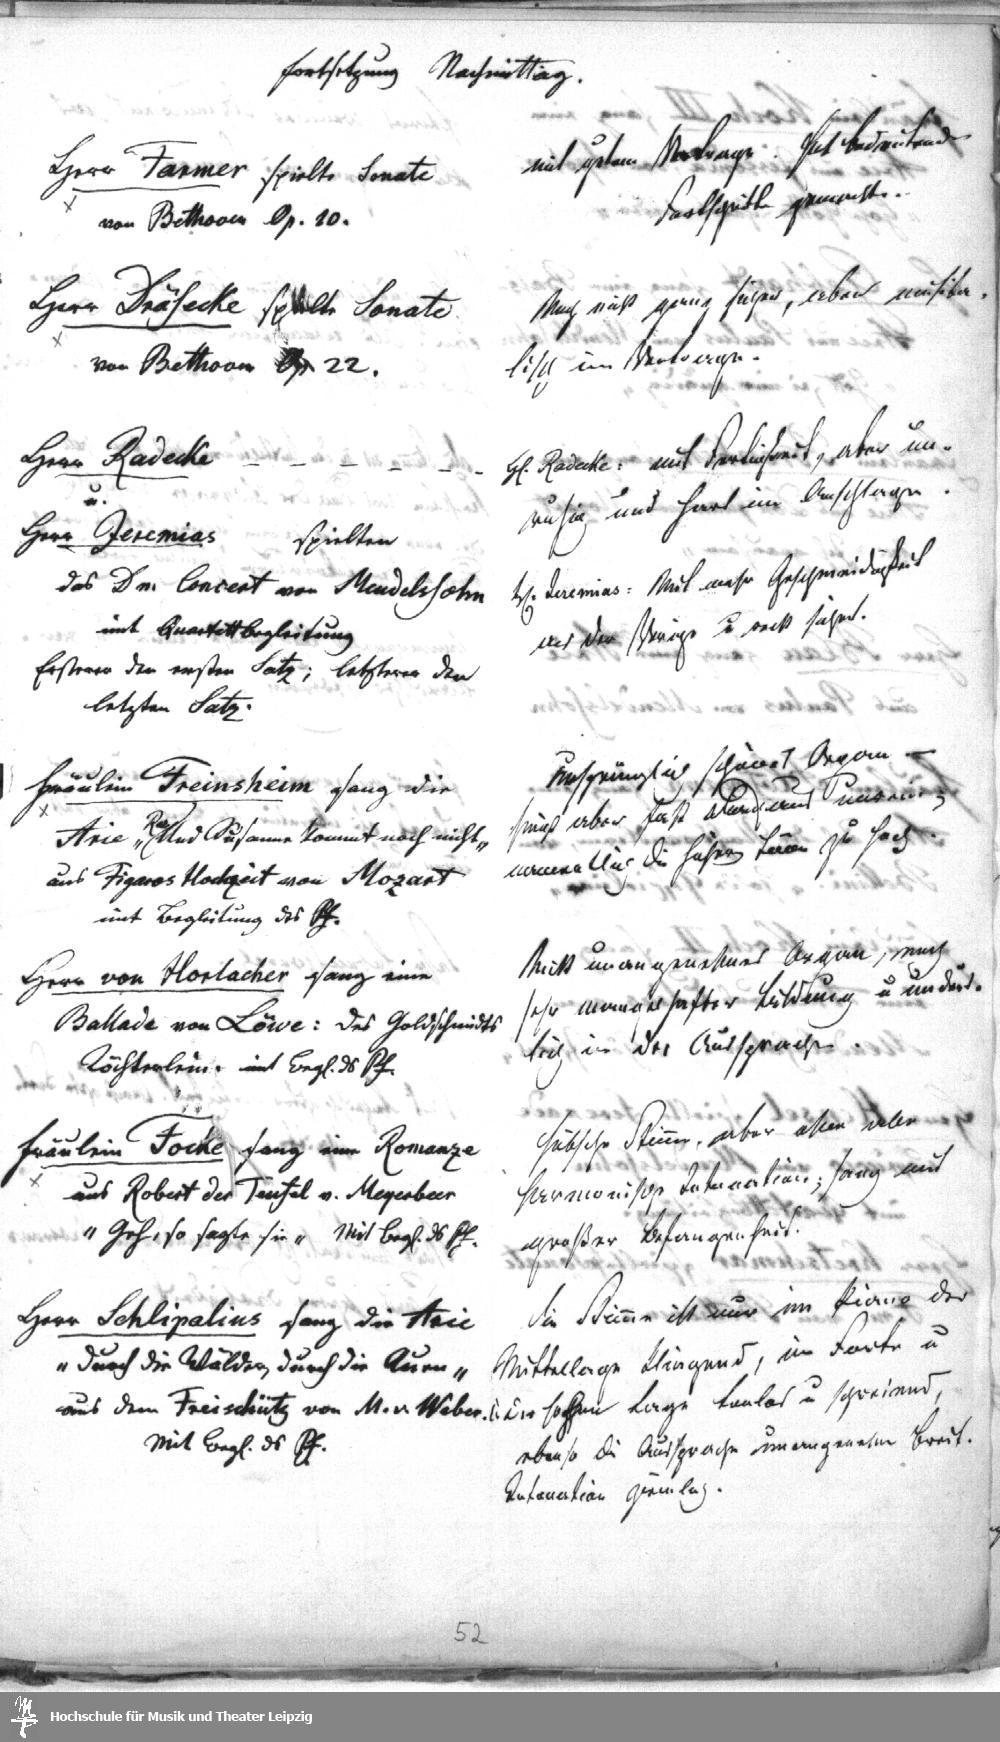 Fortsetzung Nachmittag.
Herr Farmer spielte Sonate
von Bethoven Op. 10.
mit gutem Vortrage. Hat bedeutende
Fortschritte gemacht.
Herr Dräsecke spielte Sonate
von Bethoven Op 22.
Noch nicht ganz sicher, aber musika-
lisch im Vortrage.
Herr Radecke – – – – – –
u.
Herr Jeremias spielten
das Dm. Concert von Mendelssohn
mit Quartettbegleitung
Ersterer den ersten Satz; letzterer den
letzten Satz.
H. Radecke: mit Fertigkeit, aber un-
ruhig und hart im Anschlage.
H. Jeremias: Mit mehr Geschmeidigkeit
als der Vorige u recht sicher.
Fräulein Freinsheim sang die
Arie „Rec. Und Susanne kommt noch nicht„
aus Figaros Hochzeit von Mozart
mit Begleitung des Pf.
Ursprünglich schönes Organ –
singt aber fast durchaus unrein;
namentlich die hohen Töne zu hoch.
Herr von Horlacher sang eine
Ballade von Löwe: des Goldschmidts
Töchterlein. mit Begl. ds Pf.
Nicht unangenehmes Organ, noch
sehr mangelhafter Bildung u undeut-
lich in der Aussprache.
Fräulein Focke sang eine Romanze
aus Robert der Teufel v. Meyerbeer
„Geh, so sagte sie„ Mit Begl. ds Pf.
Hübsche Stimme, aber ohne alle
harmonische Intonation; sang mit
großer Befangenheit.
Herr Schlipalius sang die Arie
„durch die Wälder, durch die Auen„
aus dem Freischütz von M. v Weber.
Mit Begl. ds Pf.
Die Stimme ist nur im Piano der
Mittellage klingend, im Forte u
in der hohen Lage tonlos u schreiend,
ebenso die Aussprache unangenehm breit.
Intonation ziemlich.
52
Hochschule für Musik und Theater Leipzig